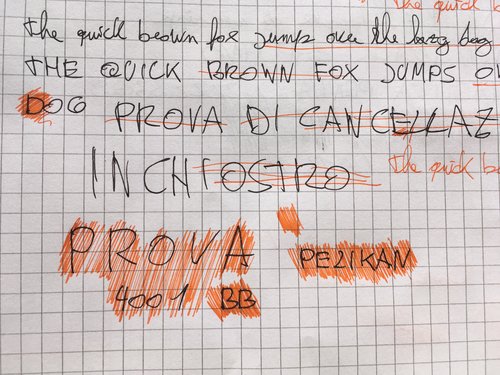 the quick b
the quick brown fox jumps over the lazy bog
THE QUICK BROWN FOX JUMPS OV
DOG PROVA DI CANCELLAZ
INCHIOSTRO
the quick be
PROVA
PELIKAN
4001 BB